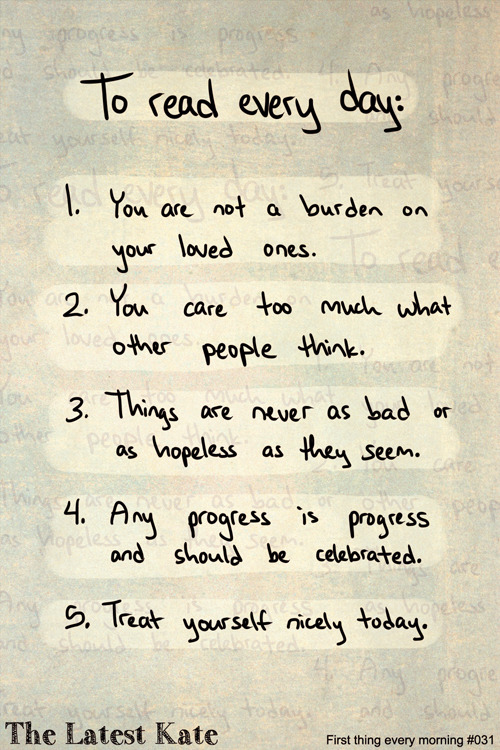 To read every day:
1. You are not a burden on
your loved ones.
2. You care too much what
other people think.
3. Things are never as bad or
as hopeless as they seem.
4. Any progress is progress
and should be celebrated.
5. Treat yourself nicely today.
The Latest Kate
First thing every morning #031